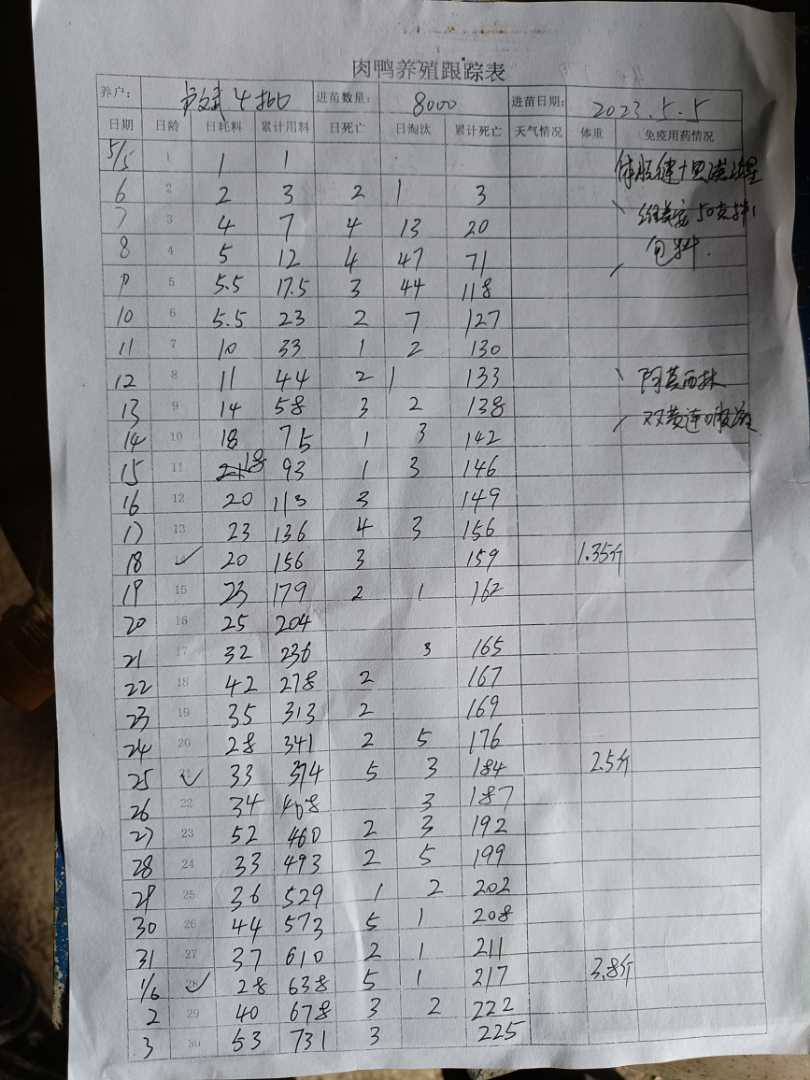 肉鸭养殖跟踪表
养户： 4 进苗数量： 8000 进苗日期： 2023.5.5
日期 日龄 日耗料 累计用料 日死亡 日淘汰 累计死亡 天气情况 体重 免疫用药情况
5/5 1 1 1
6 2 2 3 2 1 3
7 3 4 7 4 13 20 50 1
8 4 5 12 4 47 71 包料.
9 5 5.5 17.5 3 44 118
10 6 5.5 23 2 7 127
11 7 10 33 1 2 130
12 8 11 44 2 1 133 阿莫西林
13 9 14 58 3 2 138 双黄连口服液
14 10 18 75 1 3 142
15 11 18 93 1 3 146
16 12 20 113 3 149
17 13 23 136 4 3 156
18 14 ✓ 20 156 3 159 1.35斤
19 15 23 179 2 1 162
20 16 25 204
21 17 32 236 3 165
22 18 42 278 2 167
23 19 35 313 2 169
24 20 28 341 2 5 176
25 21 ✓ 33 374 5 3 184 2.5斤
26 22 34 408 3 187
27 23 52 460 2 3 192
28 24 33 493 2 5 199
29 25 36 529 1 2 202
30 26 44 573 5 1 208
31 27 37 610 2 1 211
1/6 28 ✓ 28 638 5 1 217 3.8斤
2 29 40 678 3 2 222
3 30 53 731 3 225